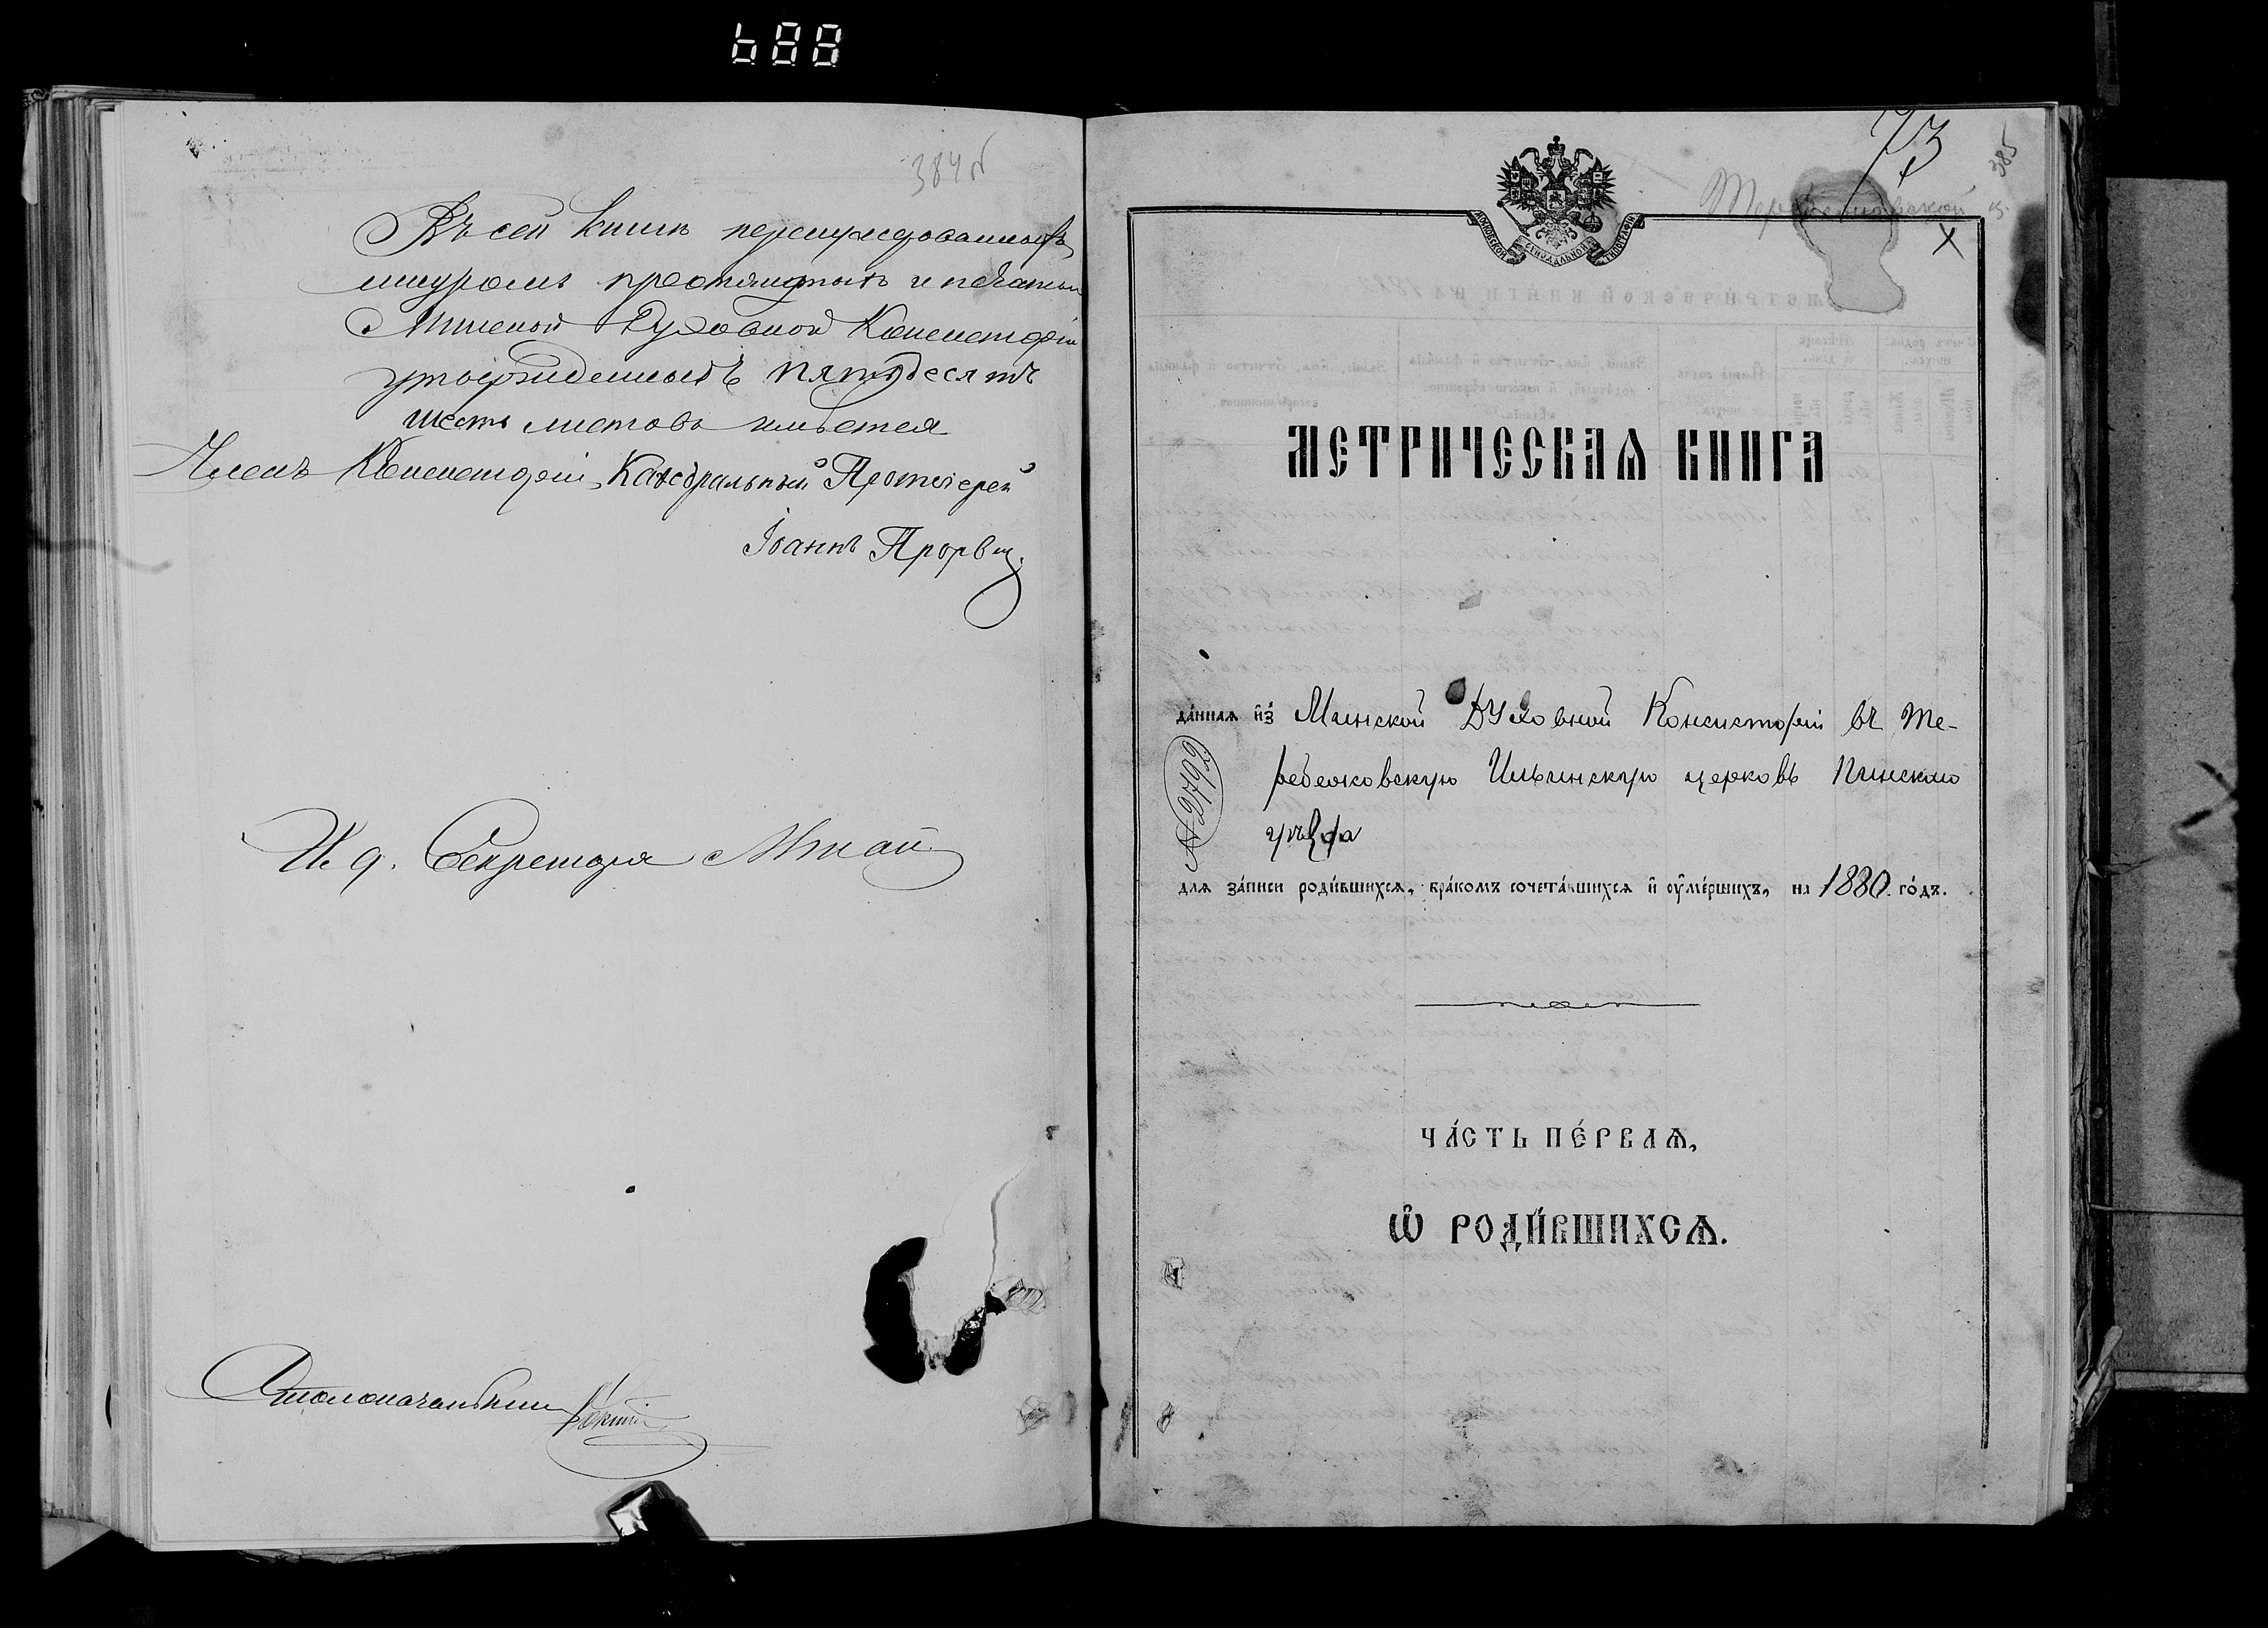 688
384 об
Въ сей книгѣ перенумерованныхъ
шнуромъ протянутыхъ и печатью
Минской Духовной Консисторіи
утвержденныхъ пятьдесятъ
шесть листовъ имѣется
Членъ Консисторіи, Каѳедральный Протоіерей
Іоаннъ Прорвич
И. д. Секретаря
Столоначальникъ
73
385
Теребежовской ц.
X
МОСКОВСКОЙ СѴНОДАЛЬНОЙ ТИПОГРАФІИ
МЕТРИЧЕСКАѦ КНИГА
да́ннаѧ и҆з̾ Минской Духовной Консисторіи въ Те-
ребежовскую Ильинскую церковь Пинскаго
уѣзда
№ 2792
длѧ за́писи роди́вшихсѧ, бра́комъ сочета́вшихсѧ и҆ ᲂу҆ме́ршихъ, на 1880 го́дъ.
ЧА́СТЬ ПЕ́РВАѦ,
Ѡ҆ РОДИ́ВШИХСѦ.